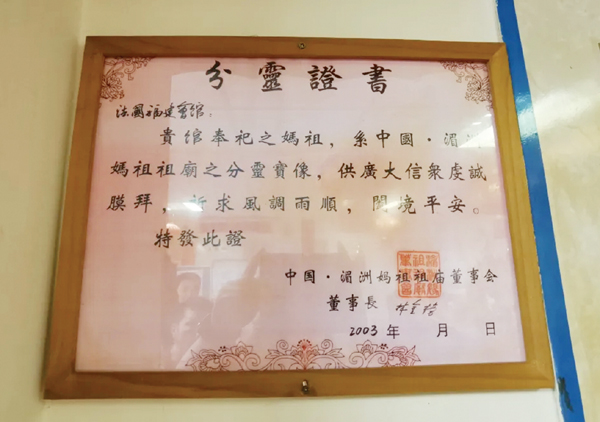 分靈證書
法國福建會馆:
貴馆奉祀之媽祖,系中國·湄洲
媽祖祖廟之分靈寶像,供廣大信眾虔誠
膜拜,祈求風調雨順,閤境平安。
特發此證
中国·湄洲妈祖祖庙董事会
董事長
2003 年 月 日